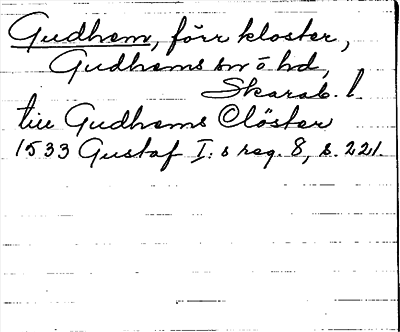 Gudhem, förr kloster,
Gudhems sn o hd,
Skarab. l.
till Gudhems Clöster
1533 Gustaf I:s reg. 8, s. 221.